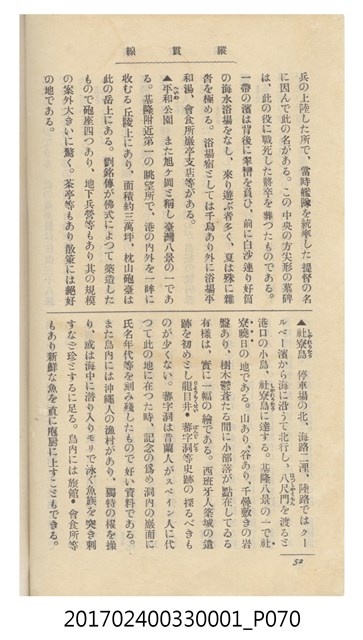 縦貫線
兵の上陸した所で、當時艦隊を統率した提督の名
に因んで此の名がある。この中央の方尖形の墓碑
は、此の役に戰死した將卒を葬つたものである。
一帶の濱は背後に翠巒を負ひ、前に白沙連り好箇
の海水浴場をなし、來り遊ぶ者多く、夏は殊に雜
沓を極める。浴場宿としては千鳥あり外に浴場平
和湯、會食所巖亭支店等がある。
▲平和公園 また旭ヶ岡と稱し臺灣八景の一であ
る。基隆附近第一の眺望所で、港の内外を一眸に
收むる丘陵上にあり、面積約三萬坪、枕山砲臺は
此の岳上にある。劉銘傳が佛式によつて築造した
もので砲座四つあり、地下兵營等もあり其の規模
の案外大きいに驚く。茶亭等もあり散策には絕好
の地である。
▲社寮島 停車場の北、海路二浬、陸路ではクー
ルベー濱から海に沿うて北行し、八尺門を渡ると
港口の小島、社寮島に達する。基隆八景の一で社
寮曉日の地である。山あり、谷あり、千疊敷きの岩
盤あり、樹木鬱蒼たる間に小部落が點在してゐる
有樣は、實に一幅の繪である。西班牙人築城の遺
跡を初めとし龍目井・蕃字洞等史跡の探るべきも
のが少くない。蕃字洞は昔蘭人がスペイン人に代
つて此の地に在つた時、記念の爲め洞内の巖面に
氏名年代等を刻み殘したもので好い資料である。
また島内には沖繩人の漁村があり、獨特の櫂を操
り、或は海中に潜り入りモリで泳ぐ魚族を突き刺
すなど珍とするに足る。島内には旅館・會食所等
もあり新鮮な魚を直に庖厨に上すこともできる。
52
201702400330001_P070